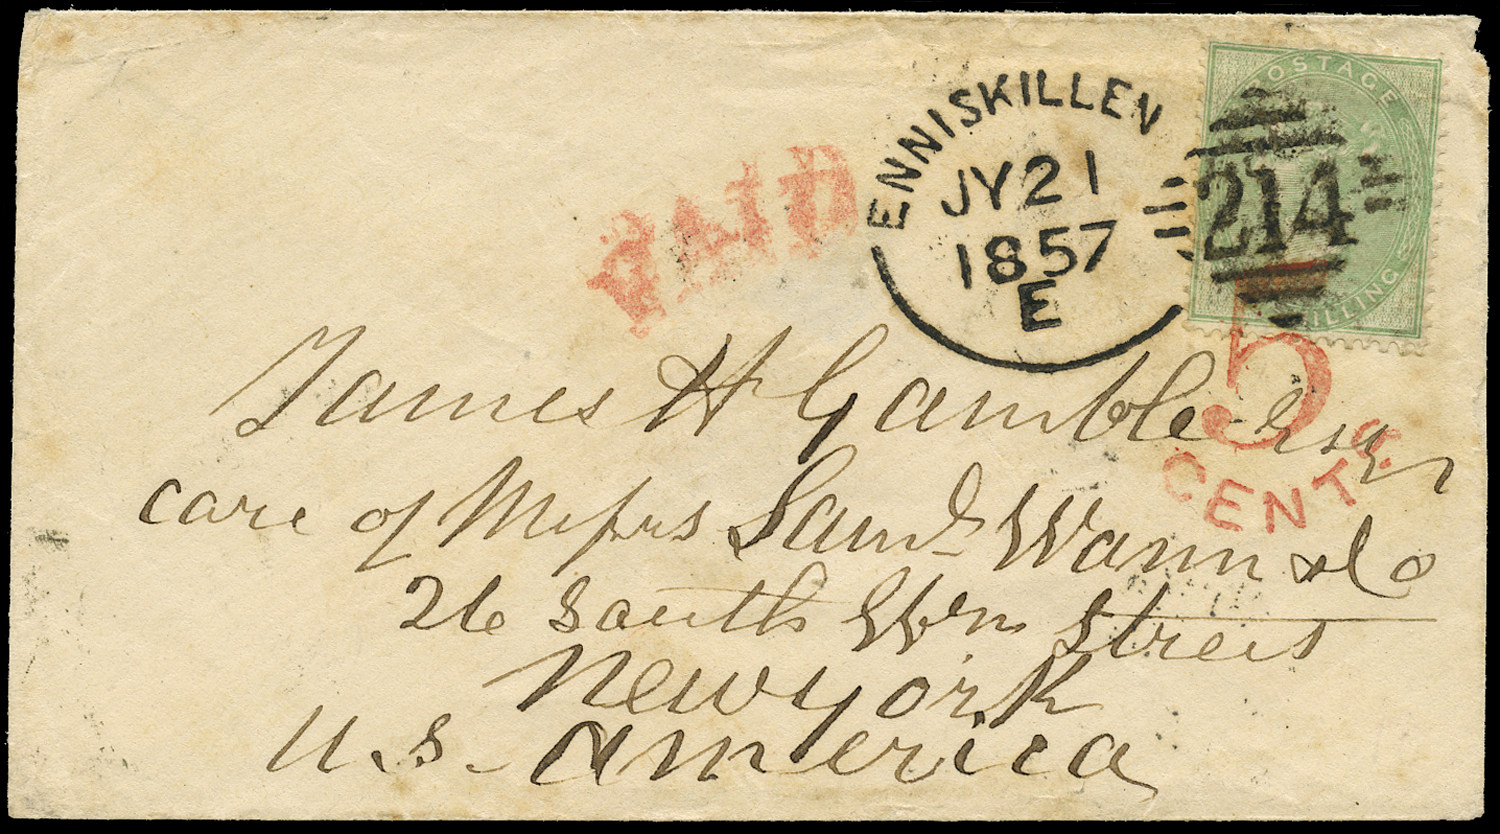 POSTAGE
ENNISKILLEN
JY 21
1857
E
214
SHILLING
PAID
5
CENTS
James H Gamble Esqr
care of Messrs Saml Wann & Co
26 South Wm Street
New york
U.S. America